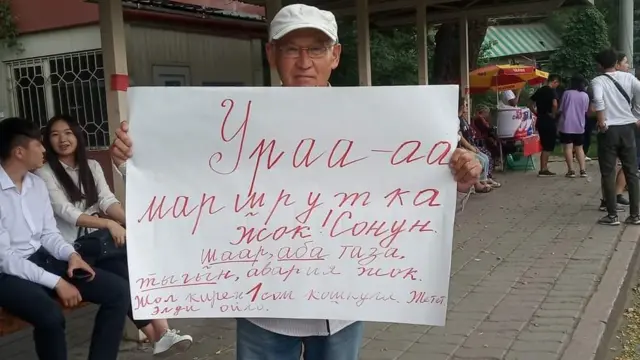 Ураа-аа
маршрутка
жок! Сонун.
шаар, аба таза.
тыгын, авария жок.
Жол кирэн 1 сом кошпула. Жетет
элди ойло.